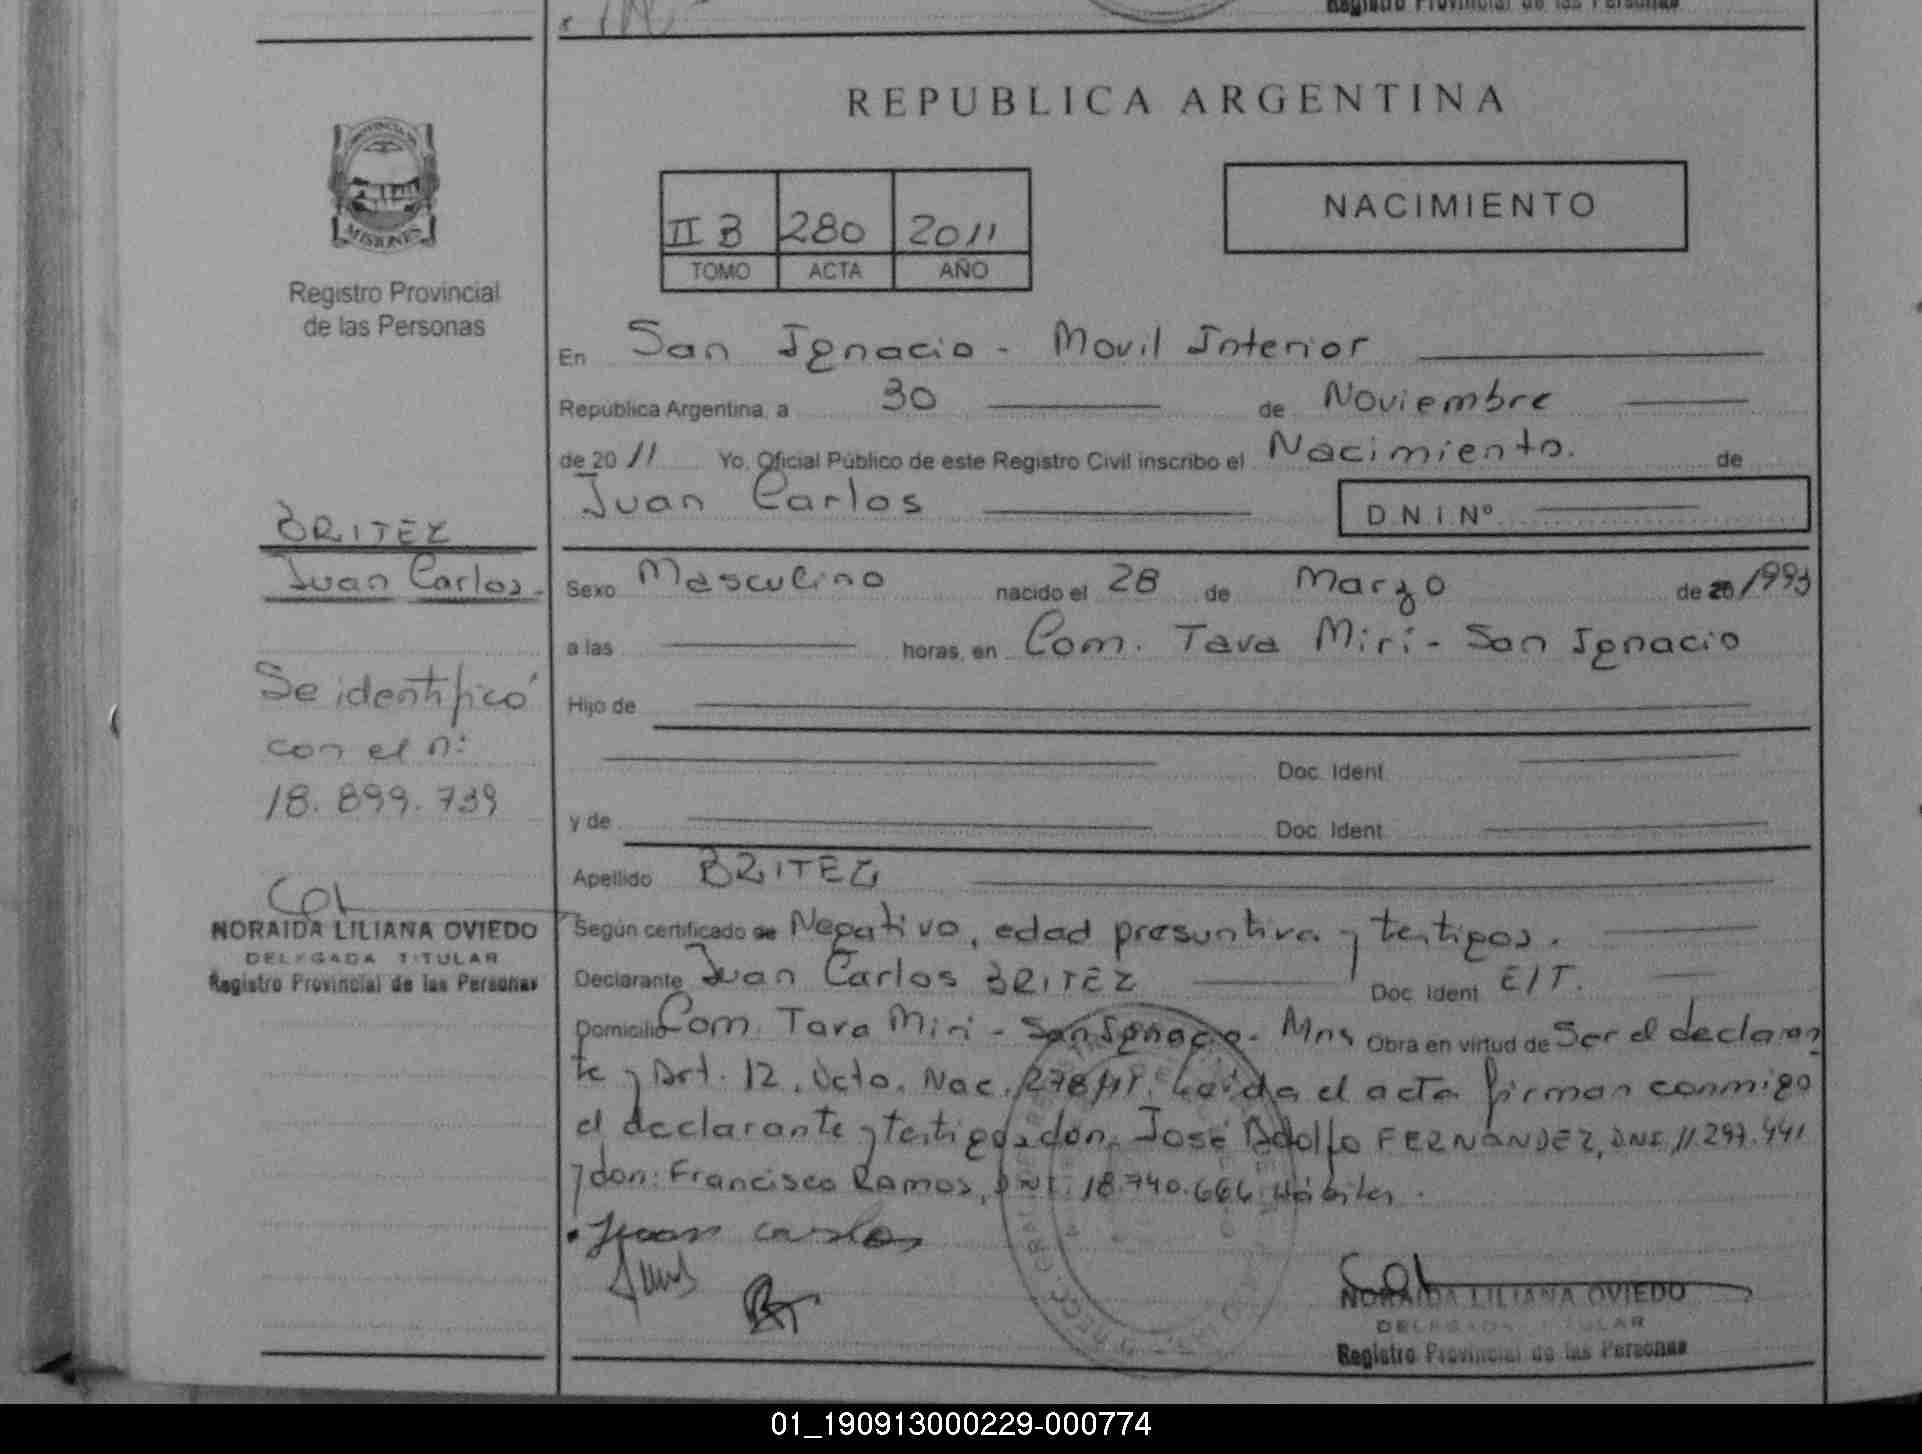 Registro Provincial de las Personas
REPUBLICA ARGENTINA
PROVINCIA DE
MISIONES
Registro Provincial
de las Personas
II B 280 2011
TOMO ACTA AÑO
NACIMIENTO
En San Ignacio - Movil Interior
República Argentina, a 30 de Noviembre
de 2011 Yo, Oficial Público de este Registro Civil inscribo el Nacimiento. de
Juan Carlos D.N.I Nº
BRITEZ
Juan Carlos.-
Sexo Masculino nacido el 28 de Marzo de 20 1993
a las horas, en Com. Tava Mirí - San Ignacio
Hijo de
Doc. Ident.
y de Doc. Ident.
Se identificó
con el nº:
18.899.739
Apellido BRITEZ
NORAIDA LILIANA OVIEDO
DELEGADA TITULAR
Registro Provincial de las Personas
Según certificado de Negativo, edad presuntiva y testigos.
Declarante Juan Carlos BRITEZ Doc. Ident. E/T.
Domicilio Com. Tava Miri - San Ignacio - Mns Obra en virtud de Ser el declaran
te y Art. 12, Dcto. Nac. 278/11. Leída el acta firman conmigo
el declarante y testigos don: José Adolfo FERNANDEZ, DNI. 11.297.441
y don: Francisco Ramos, DNI. 18.740.664 Hábiles.
Juan Carlos
NORAIDA LILIANA OVIEDO
DELEGADA TITULAR
Registro Provincial de las Personas
01_190913000229-000774